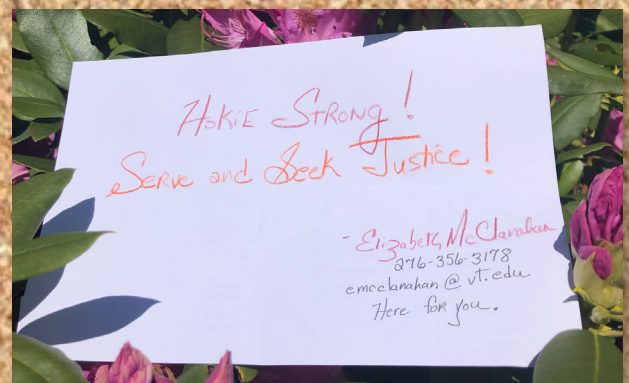 HOKIE STRONG!
SERVE and Seek Justice!
- Elizabeth McClanahan
276-356-3178
emcclanahan@vt.edu
Here for you.